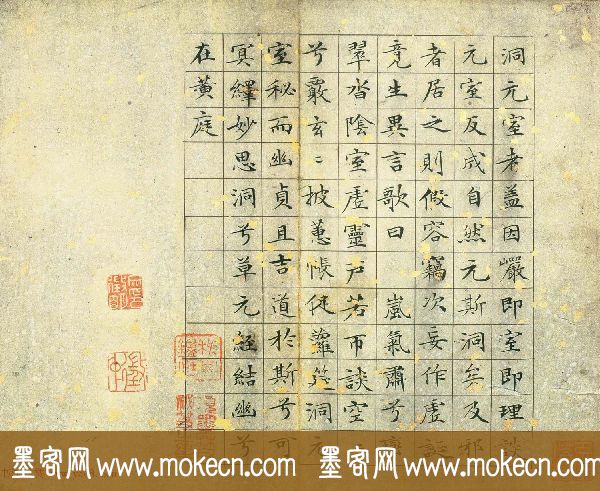 洞元室者盖因巖即室即理談
元室反成自然元斯洞矣及邪
者居之則假容竊次妄作虛誕
竟生異言歌曰 嵐氣肅兮巖
翠沓陰室虛靈戶若帀談空
兮覈玄〻披蕙帳促蘿筵洞元
室秘而幽貞且吉道於斯兮可
冥繹妙思洞兮草元經結幽兮
在黃庭
墨客网www.mokecn.com 墨客网www.mokecn.com